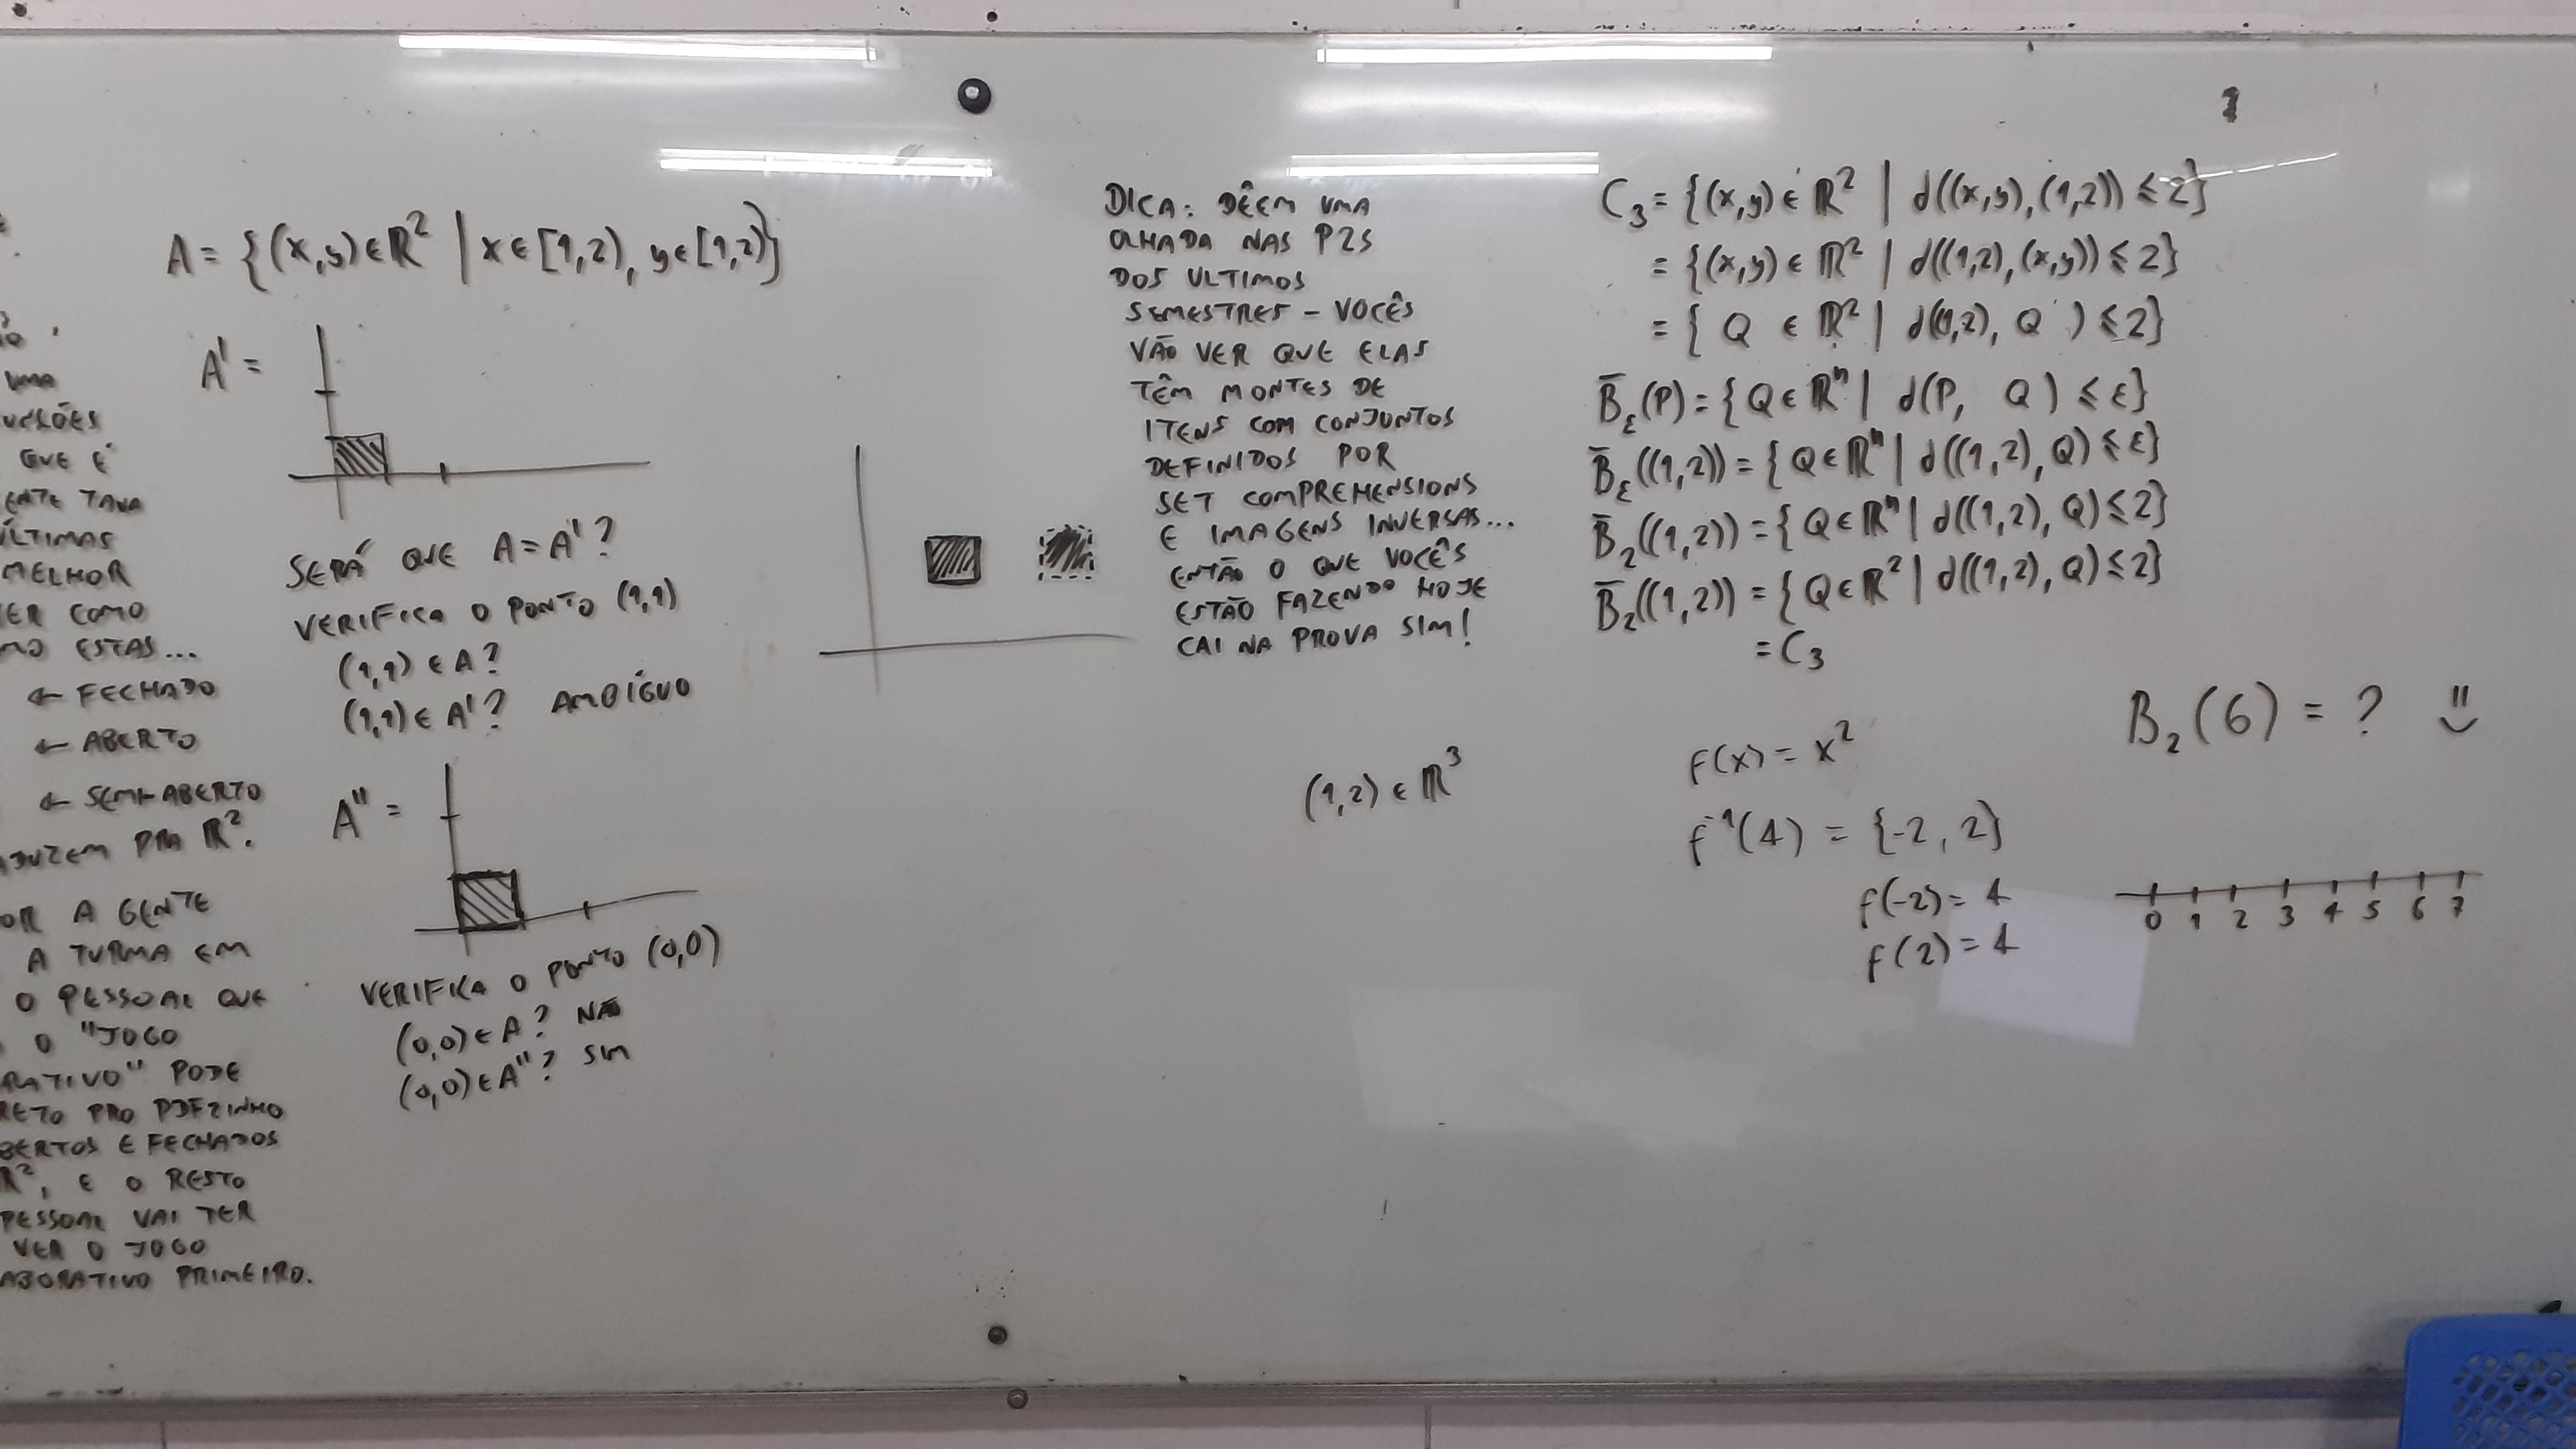 UMA
QUE É
ENTE TAVA
ÚLTIMAS
MELHOR
COMO
ESTAS...
← FECHADO
← ABERTO
← SEMI-ABERTO
PRA R².
A GENTE
A TURMA EM
O PESSOAL QUE
O "JOGO
RATIVO" PODE
RETO PRO PDFZINHO
BERTOS E FECHADOS
R², E O RESTO
PESSOAL VAI TER
VER O JOGO
ABORATIVO PRIMEIRO.
A = {(x,y)∈R² | x∈[1,2), y∈[1,2)}
A' =
SERÁ QUE A=A'?
VERIFICA O PONTO (1,1)
(1,1) ∈ A?
(1,1) ∈ A'? AMBÍGUO
A'' =
VERIFICA O PONTO (0,0)
(0,0) ∈ A? NÃO
(0,0) ∈ A''? SIM
DICA: DÊEM UMA
OLHADA NAS P2S
DOS ULTIMOS
SEMESTRES – VOCÊS
VÃO VER QUE ELAS
TÊM MONTES DE
ITENS COM CONJUNTOS
DEFINIDOS POR
SET COMPREHENSIONS
E IMAGENS INVERSAS...
ENTÃO O QUE VOCÊS
ESTÃO FAZENDO HOJE
CAI NA PROVA SIM!
(1,2) ∈ R³
C₃ = {(x,y) ∈ R² | d((x,y),(1,2)) ≤ 2}
= {(x,y) ∈ R² | d((1,2),(x,y)) ≤ 2}
= { Q ∈ R² | d((1,2), Q ) ≤ 2}
B̄_ε(P) = { Q ∈ Rⁿ | d(P, Q ) ≤ ε}
B̄_ε((1,2)) = { Q ∈ Rⁿ | d((1,2), Q) ≤ ε}
B̄₂((1,2)) = { Q ∈ Rⁿ | d((1,2), Q) ≤ 2}
B̄₂((1,2)) = { Q ∈ R² | d((1,2), Q) ≤ 2}
= C₃
f(x) = x²
f⁻¹(4) = {-2, 2}
f(-2) = 4
f(2) = 4
B₂(6) = ?
0 1 2 3 4 5 6 7